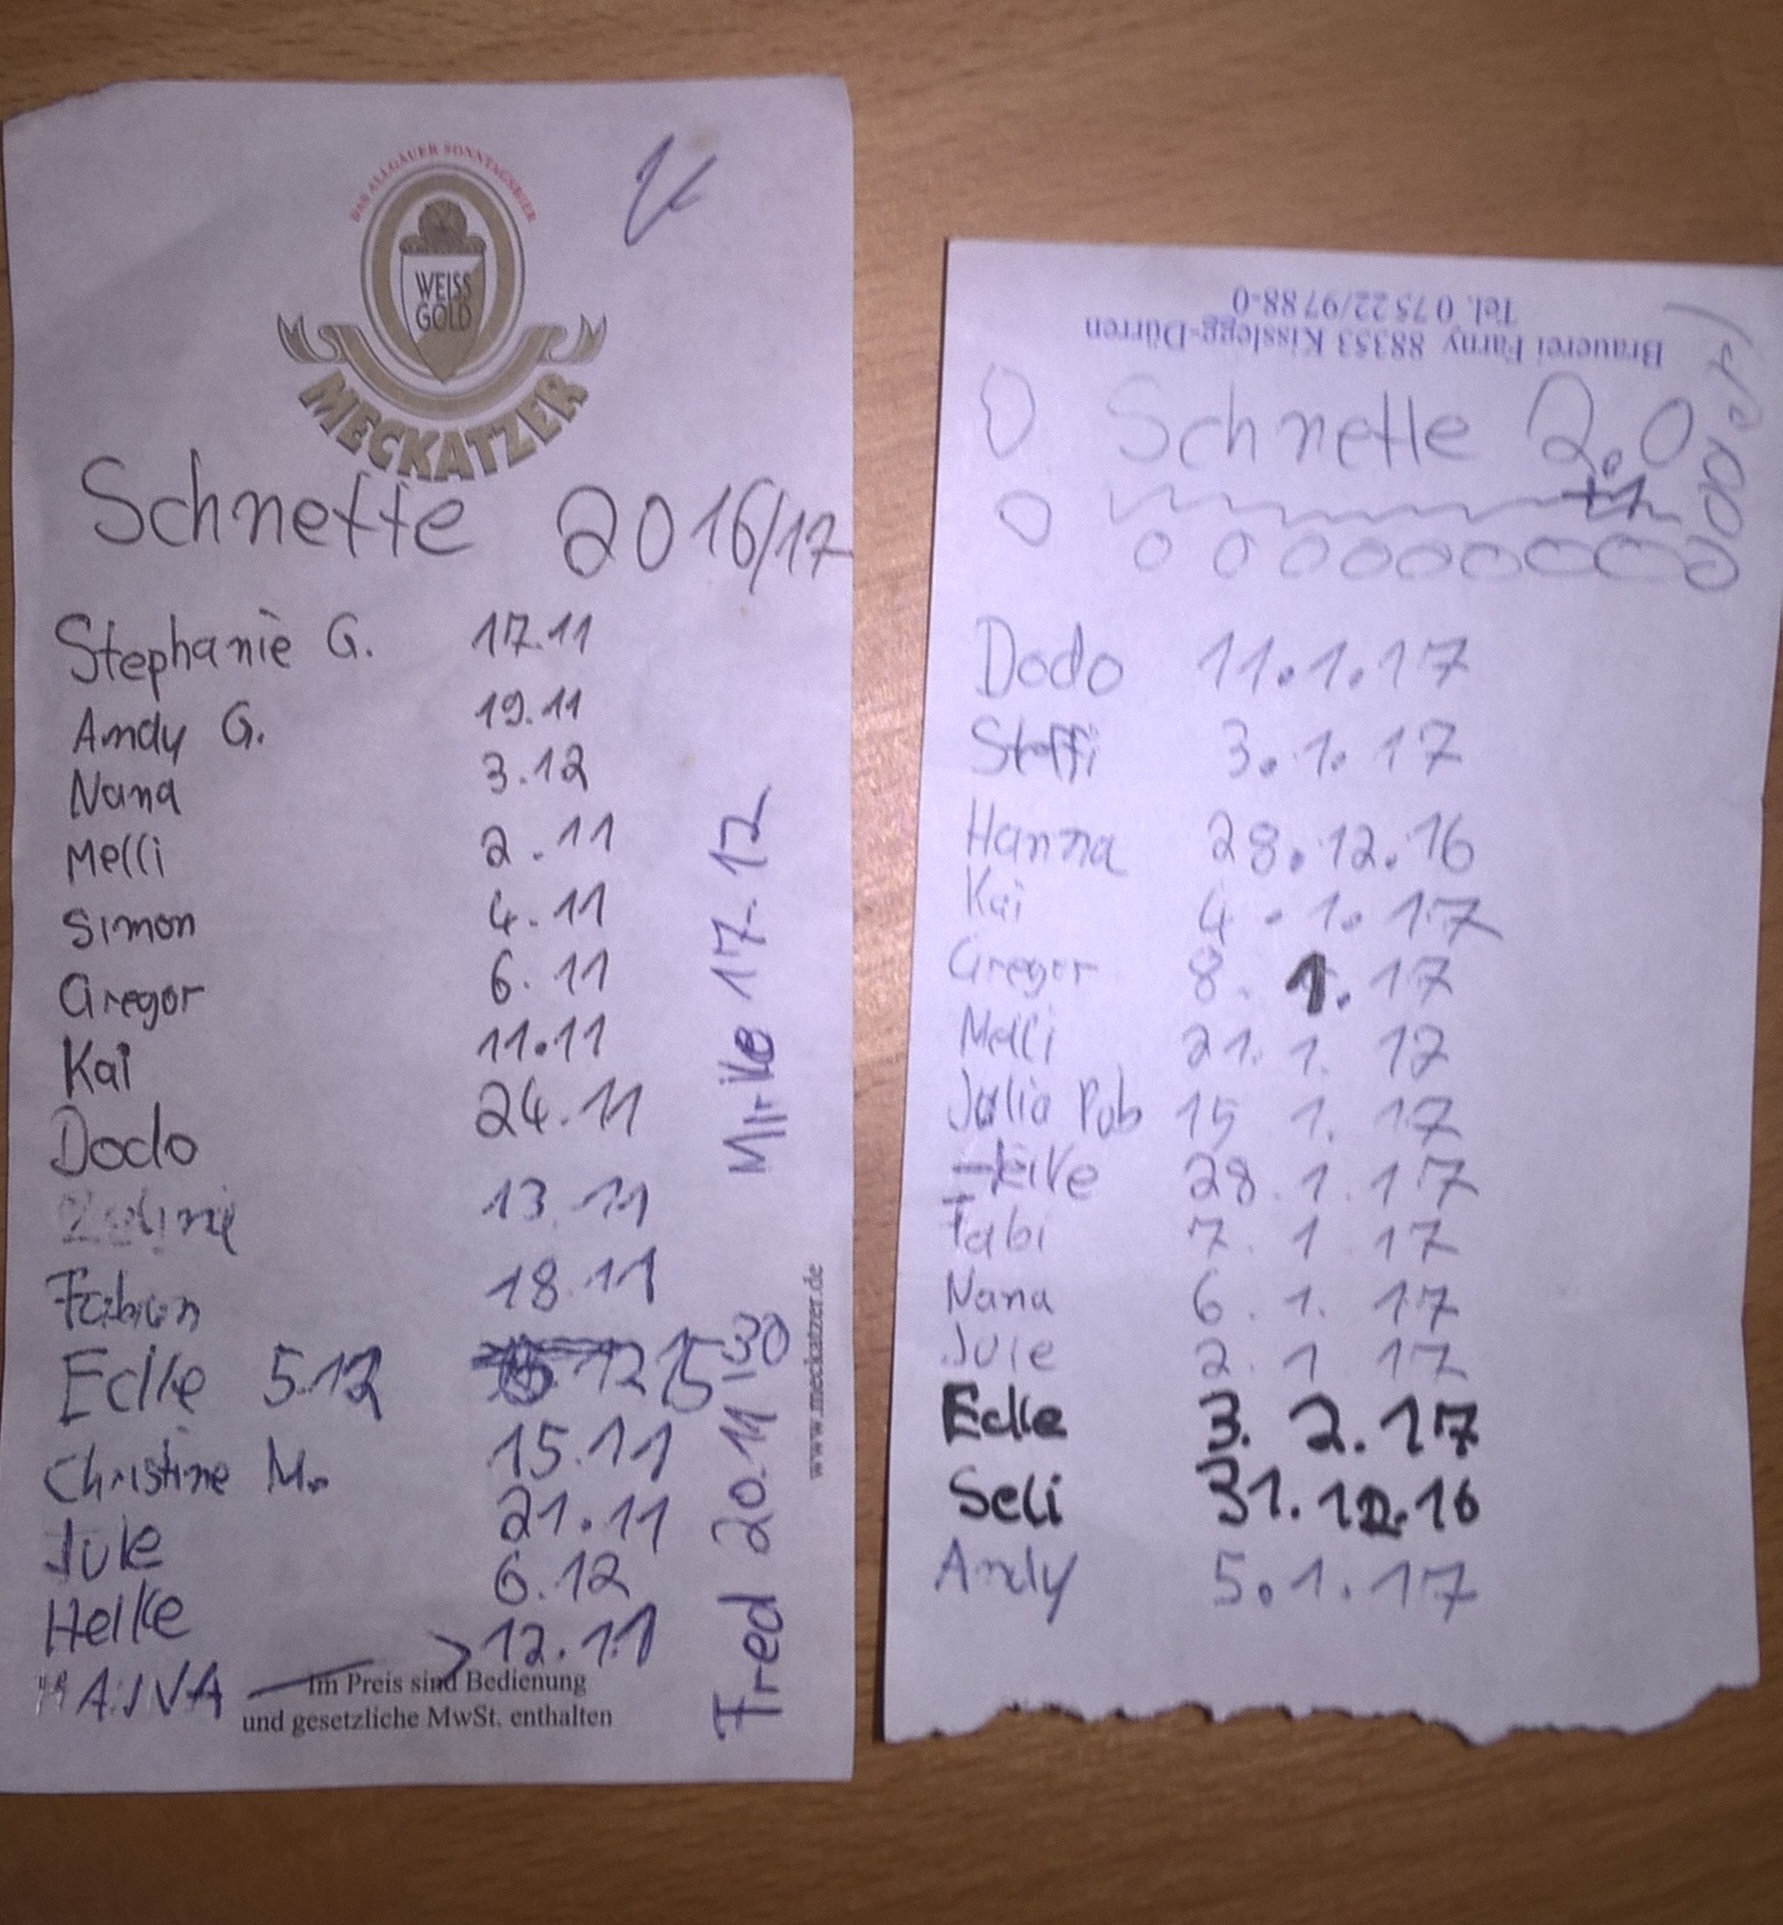 DAS ALLGÄUER SONNTAGSBIER
WEISS
GOLD
MECKATZER
Schnette 2016/17
Stephanie G. 17.11
Andy G. 19.11
Nana 3.12
Melli 2.11
Simon 4.11
Gregor 6.11
Kai 11.11
Dodo 24.11
13.11
Fabian 18.11
Edke 5.12 12 15 30
Christine M. 15.11
Jule 21.11
Heike 6.12
12.11
Im Preis sind Bedienung
und gesetzliche MwSt. enthalten
Mirike 17.12
Fred 20.11
www.meckatzer.de
Brauerei Farny 88353 Kisslegg-Dürren
Tel. 07522/9788-0
Schnette 2.0
+1
Dodo 11.1.17
Steffi 3.1.17
Hanna 28.12.16
Kai 4.1.17
Gregor 8.1.17
Melli 21.1.17
Julia Pub 15 1.17
Heike 28.1.17
Fabi 7.1.17
Nana 6.1.17
Jule 2.1.17
Edke 3.2.17
Seli 31.12.16
Andy 5.1.17